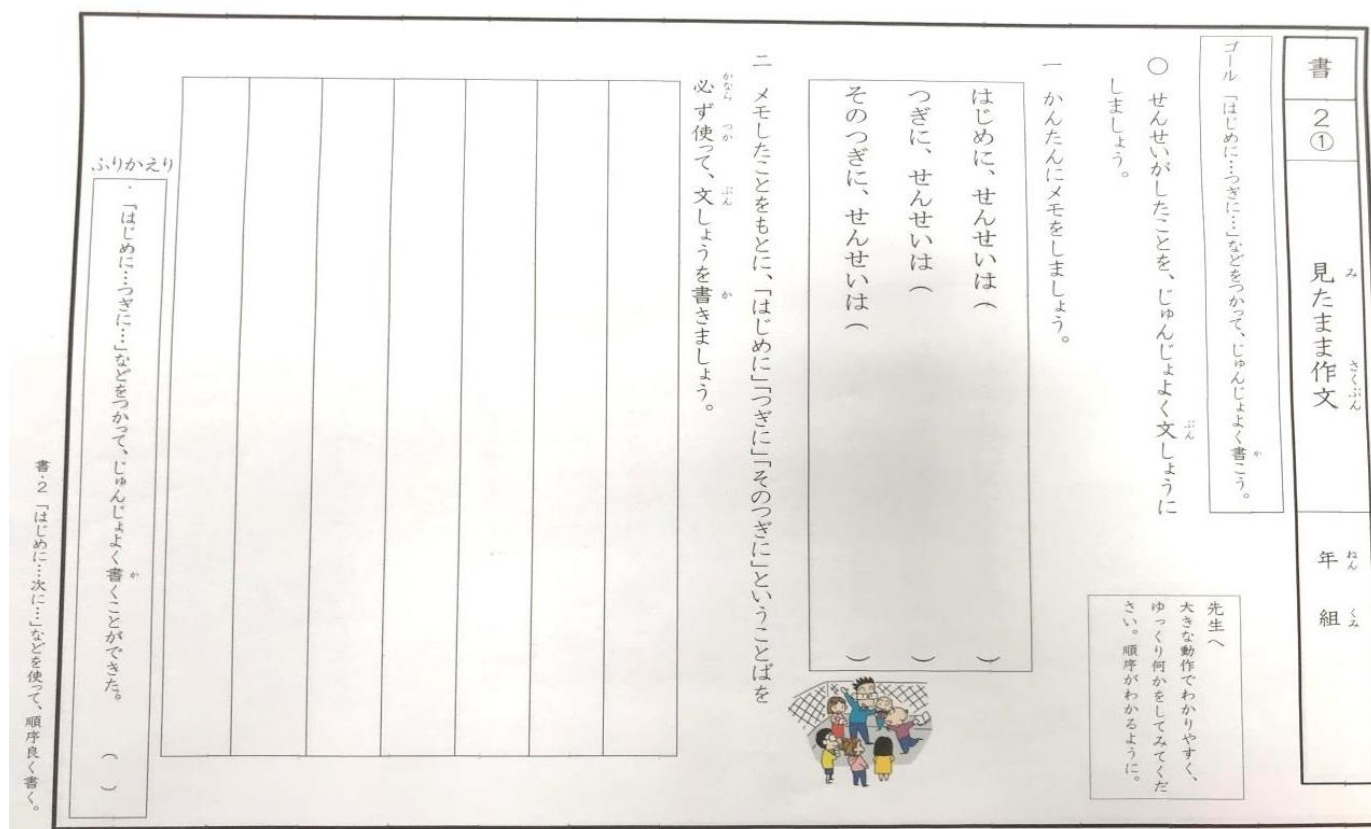 書
2①
見たまま作文
みさくぶん
年組
ねんくみ
ゴール「はじめに…つぎに…」などをつかって、じゅんじょよく書こう。
か
○せんせいがしたことを、じゅんじょよく文しょうに
ぶん
しましょう。
先生へ
大きな動作でわかりやすく、
ゆっくり何かをしてみてくだ
さい。順序がわかるように。
一 かんたんにメモをしましょう。
はじめに、せんせいは( )
つぎに、せんせいは( )
そのつぎに、せんせいは( )
二 メモしたことをもとに、「はじめに」「つぎに」「そのつぎに」ということばを
必ず使って、文しょうを書きましょう。
かならつかぶんか
ふりかえり
・「はじめに…つぎに…」などをつかって、じゅんじょよく書くことができた。( )
か
書・2「はじめに…次に…」などを使って、順序良く書く。